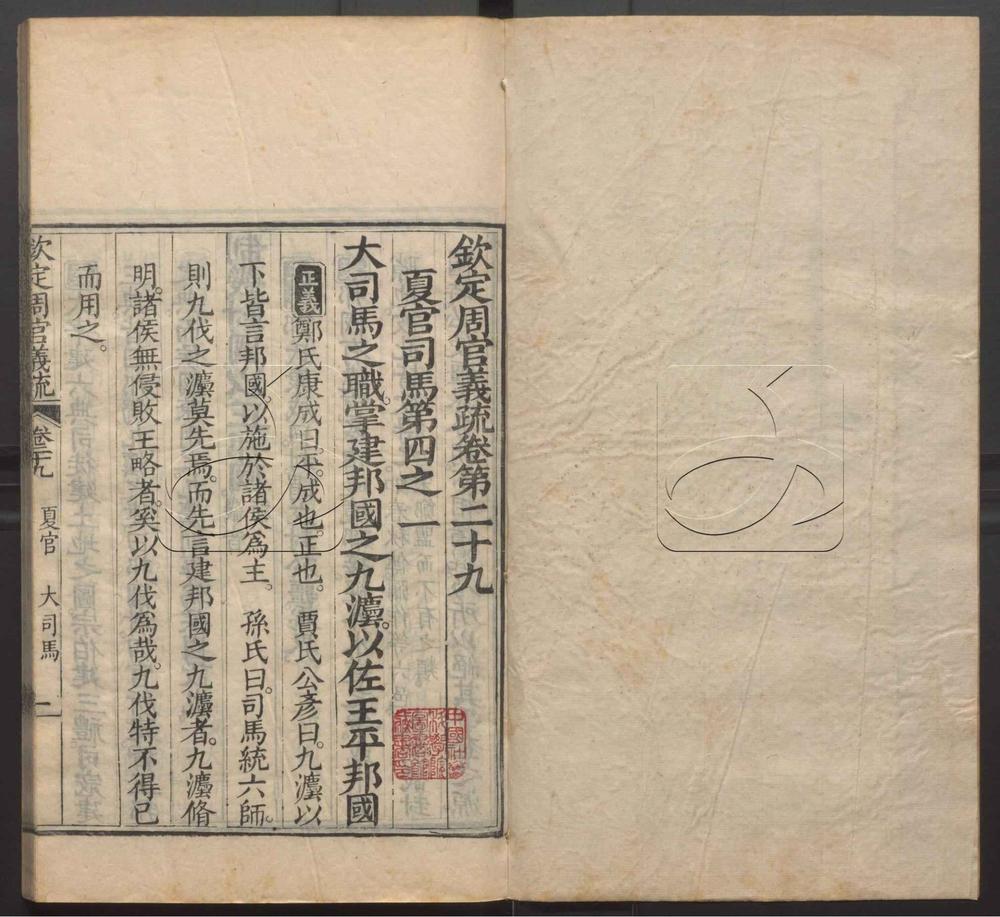 欽定周官義疏卷第二十九
夏官司馬第四之一
大司馬之職。掌建邦國之九灋。以佐王平邦國
正義鄭氏康成曰。平。成也。正也。賈氏公彥曰。九灋以
下皆言邦國。以施於諸侯為主。孫氏曰。司馬統六師。
則九伐之灋莫先焉。而先言建邦國之九灋者。九灋脩
明。諸侯無侵敗王略者。奚以九伐為哉。九伐特不得已
而用之。
欽定周官義疏 卷二十九 夏官 大司馬 一